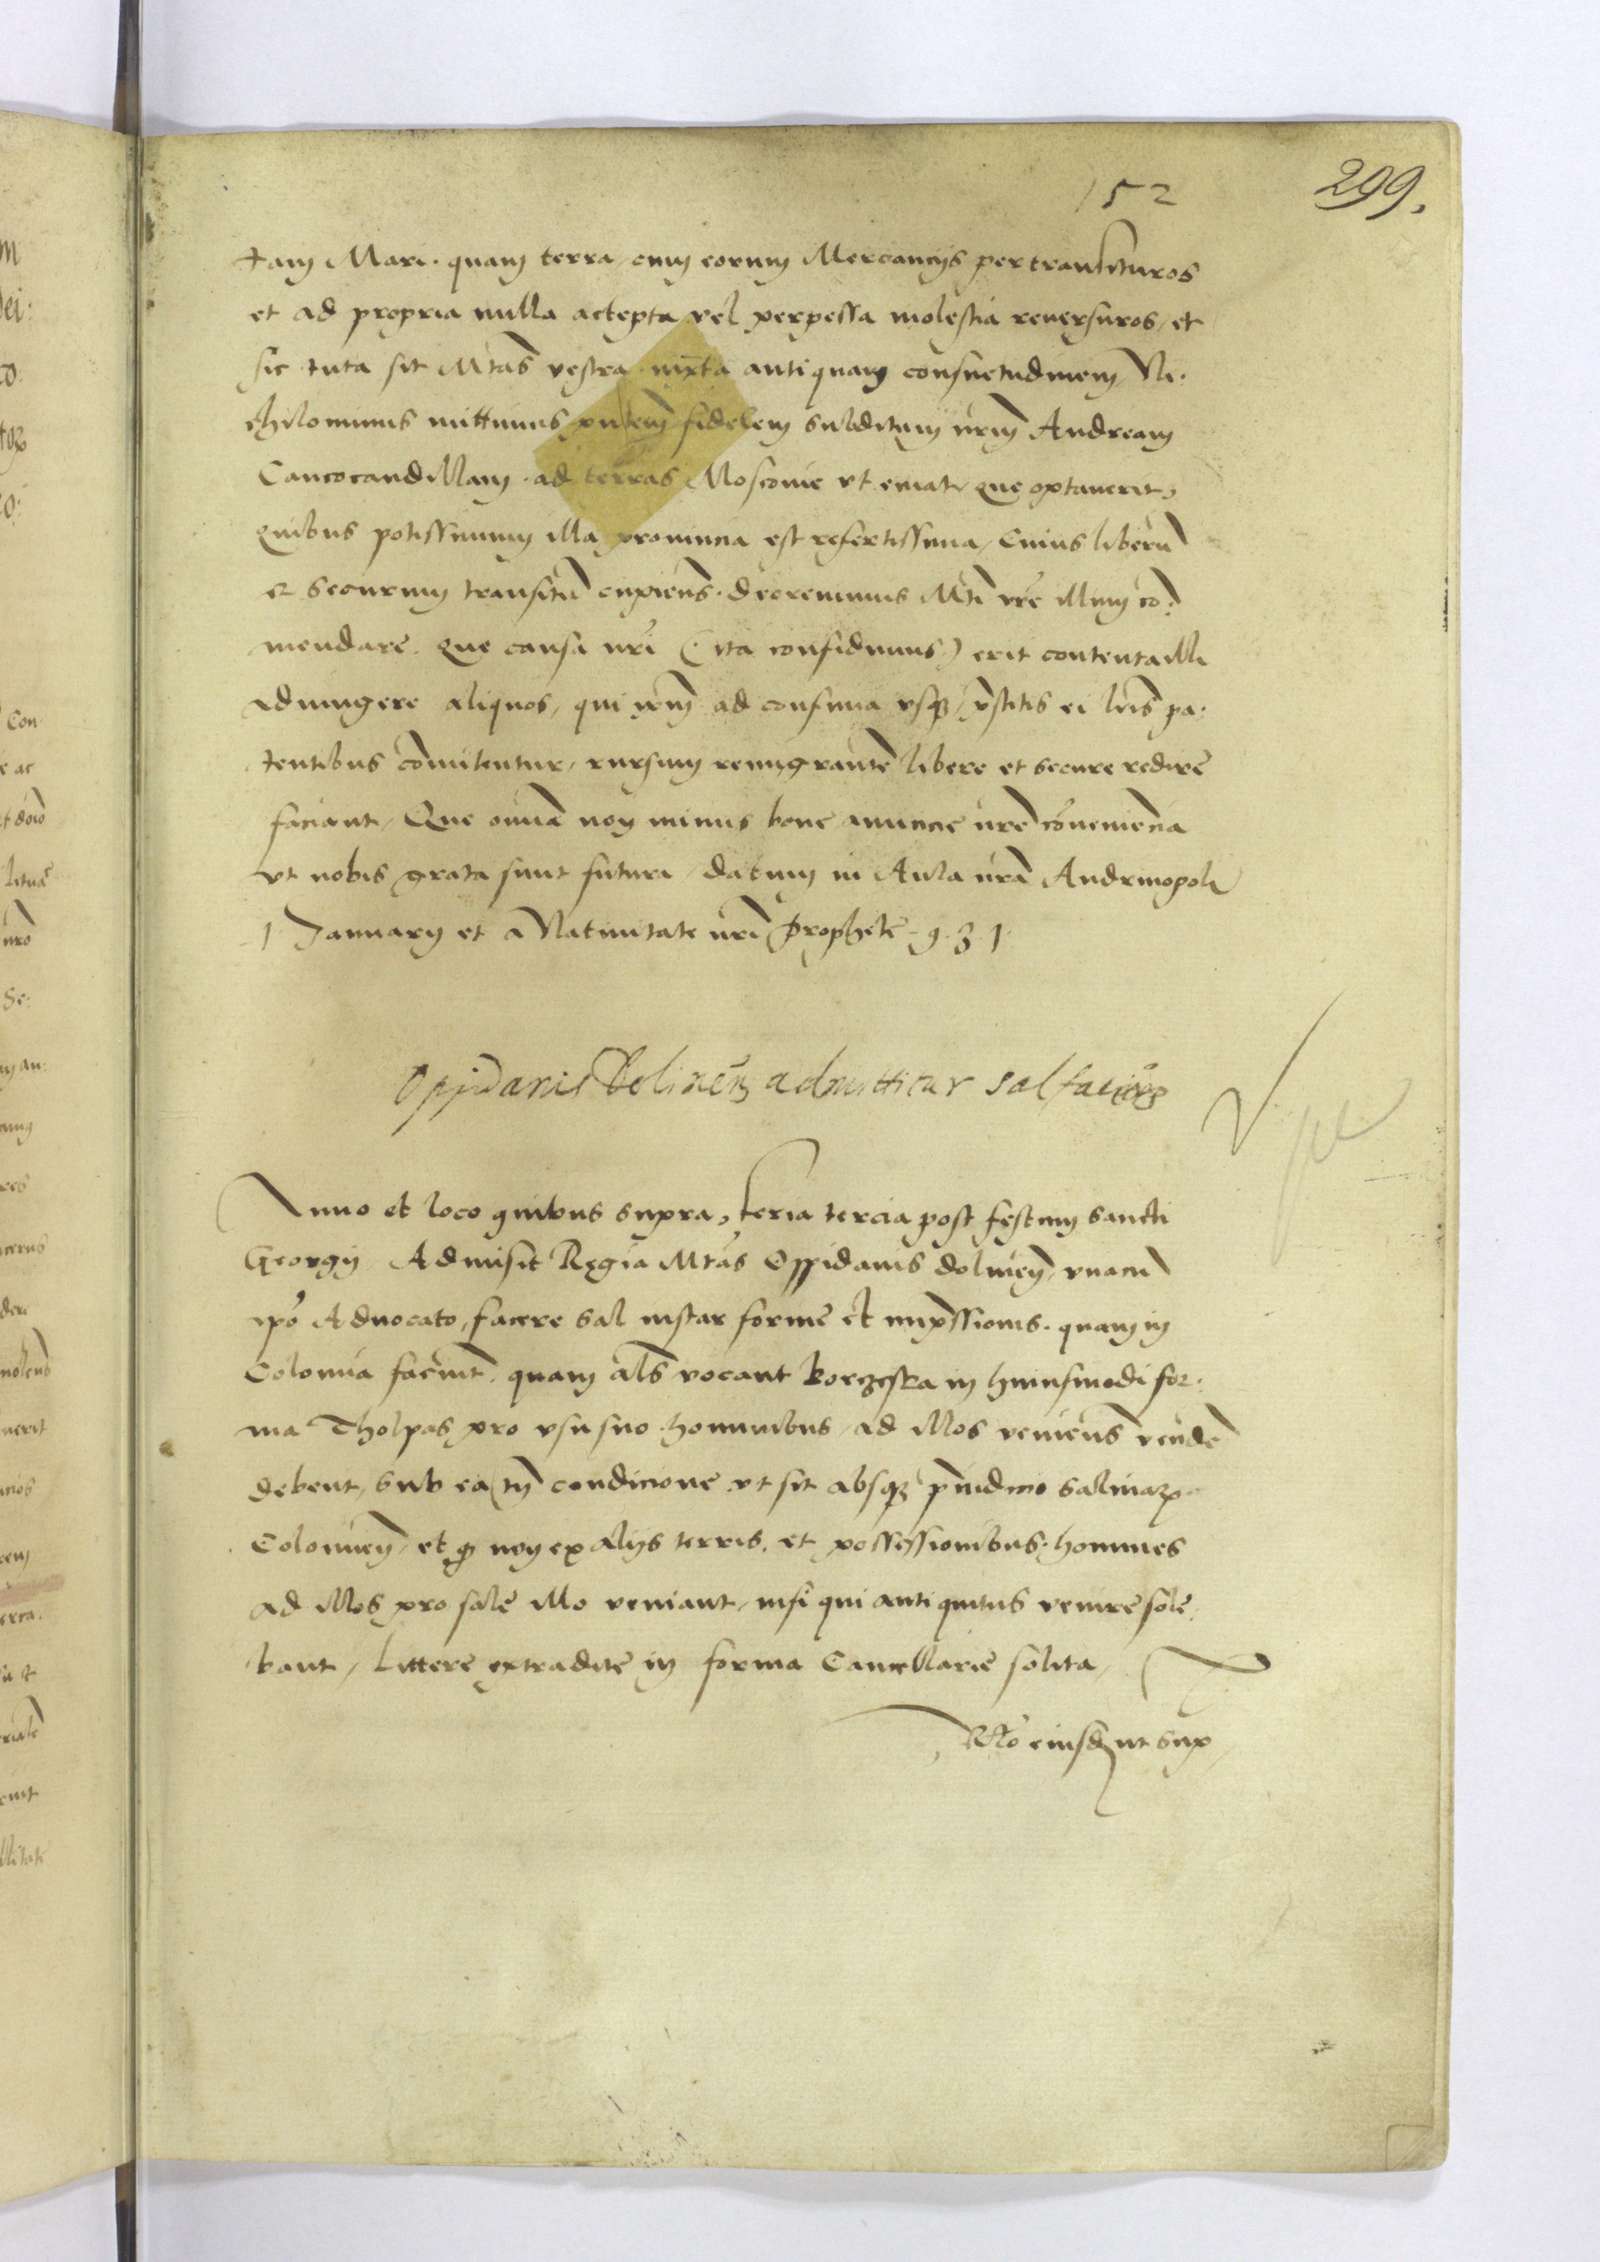 152
299.
tam Mari. quam terra cum eorum Mercanciis pertransituros
et ad propria nulla accepta vel perpessa molestia reuersuros, et
sic tuta sit Mtas vestra iuxta antiquam consuetudinem, Ni.
chilominus mittimus pntem fidelem subditum nrm Andream
Cancocandillam ad terras Moscouie vt emat que optauerit,
quibus potissimum illa prouincia est refertissima, Cuius liberu
et securum transitu cupiens. decreuimus Mti vre illum co.
mendare. que causa nri (ita confidimus) erit contenta illi
adiungere aliquos, qui ipm ad confinia vsq, restitis ei lris pa.
tentibus comitentur, rursum remigrante libere et secure redire
faciant, Que omnia non minus bone amicicie nre conueniencia
vt nobis grata sunt futura, datum in Aula nra Andrinopoli
1 January et a Natiuitate nri Prophete. 9.3.1.
Oppidanis Dolinen admittitur sal facere
Anno et loco quibus supra, feria tercia post festum sancti
Georgij Admisit Regia Mtas Oppidanis dolinen, vnacu
ipo Aduocato, facere sal instar forme et impssionis. quam in
Colomia faciunt. quam als vocant in huiusmodi for.
ma Tholpas, pro vsu suo hominibus, ad illos veniens vende
debent, sub ea tn condicione vt sit absq piudicio salinar
Colomien, et q non ex alijs terris. et possessionibus. homines
ad illos pro sale illo veniant, nisi qui antiquitus venire sole.
bant, Littere extradite in forma Cancellarie solita,
Rlo eiusde ut sup